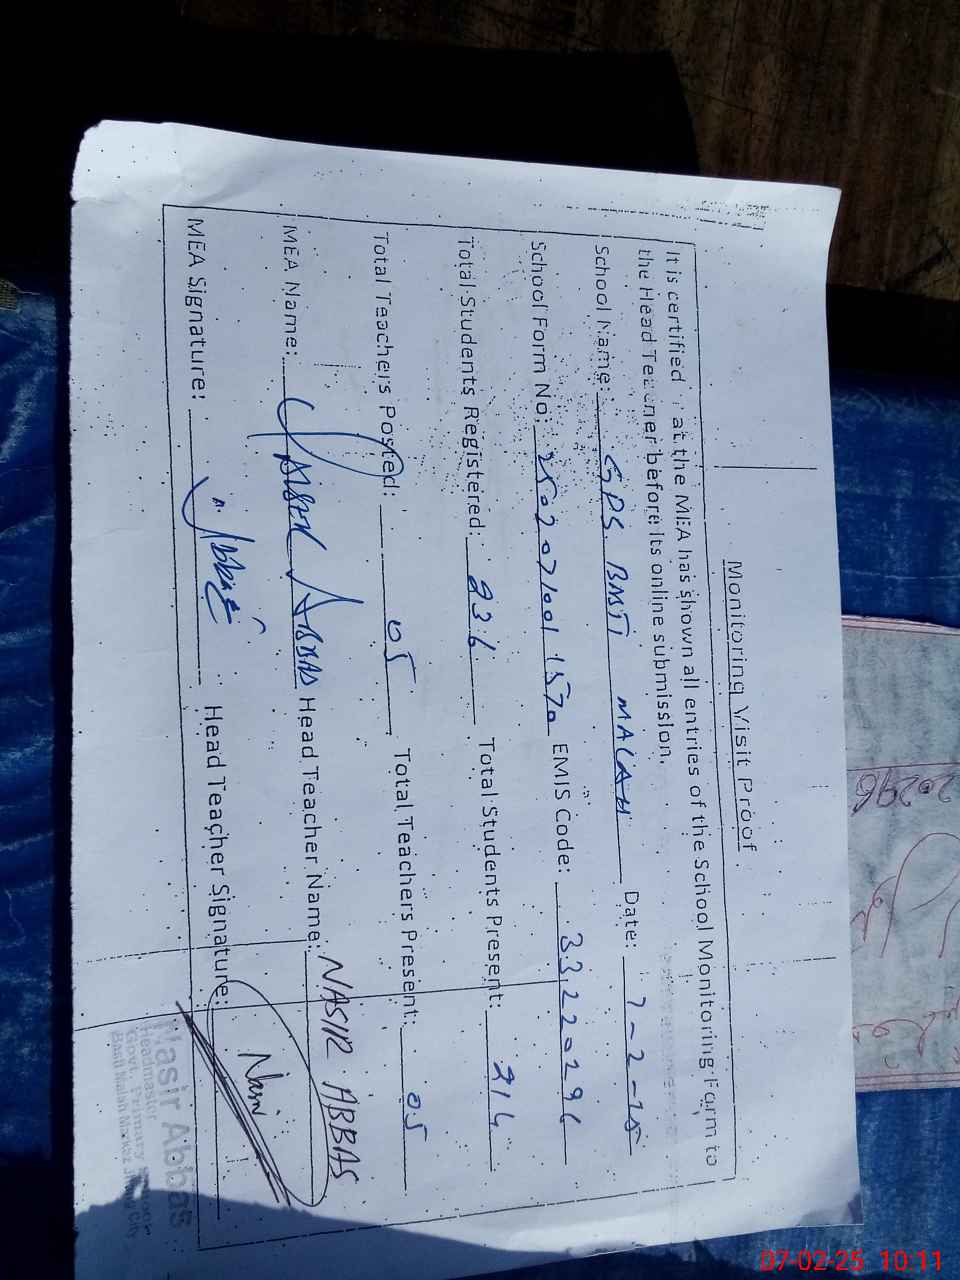 Monitoring Visit Proof
It is certified that the MEA has shown all entries of the School Monitoring Form to
the Head Teacher before its online submission.
School Name: GPS. BASTI MALAH Date: 7-2-25
School Form No: 2502071001 1570 EMS Code: 33220296
Total Students Registered: 236 Total Students Present: 214
Total Teachers Posted: 05 Total Teachers Present: 05
MEA Name: ABBAS Head Teacher Name: NASIR ABBAS
MEA Signature: Abbas Head Teacher Signature: Nasir
Nasir Abbas
Headmaster
Govt. Primary School
Basti Malah City
20296
07-02-25 10:11